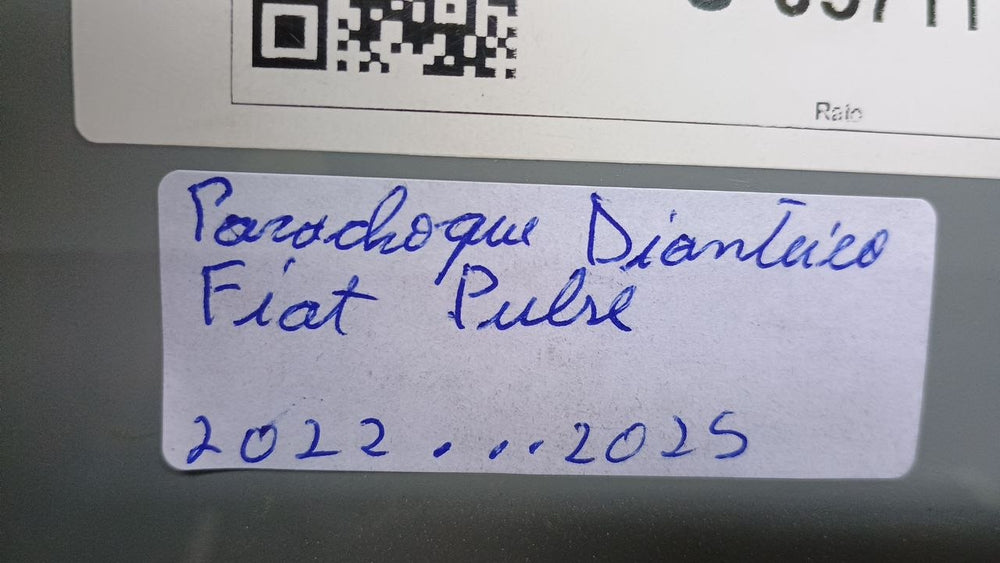 Raio
Parachoque Dianteiro
Fiat Pulse
2022...2025